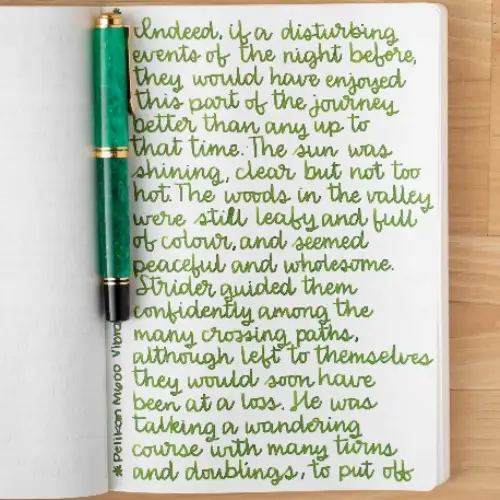 Indeed, if a disturbing
events of the night before,
they would have enjoyed
this part of the journey
better than any up to
that time. The sun was
shining, clear but not too
hot. The woods in the valley
were still leafy and full
of colour, and seemed
peaceful and wholesome.
Strider guided them
confidently among the
many crossing paths,
although left to themselves
they would soon have
been at a loss. He was
talking a wandering
course with many turns
and doublings, to put off
*Pelikan M600 Vibra